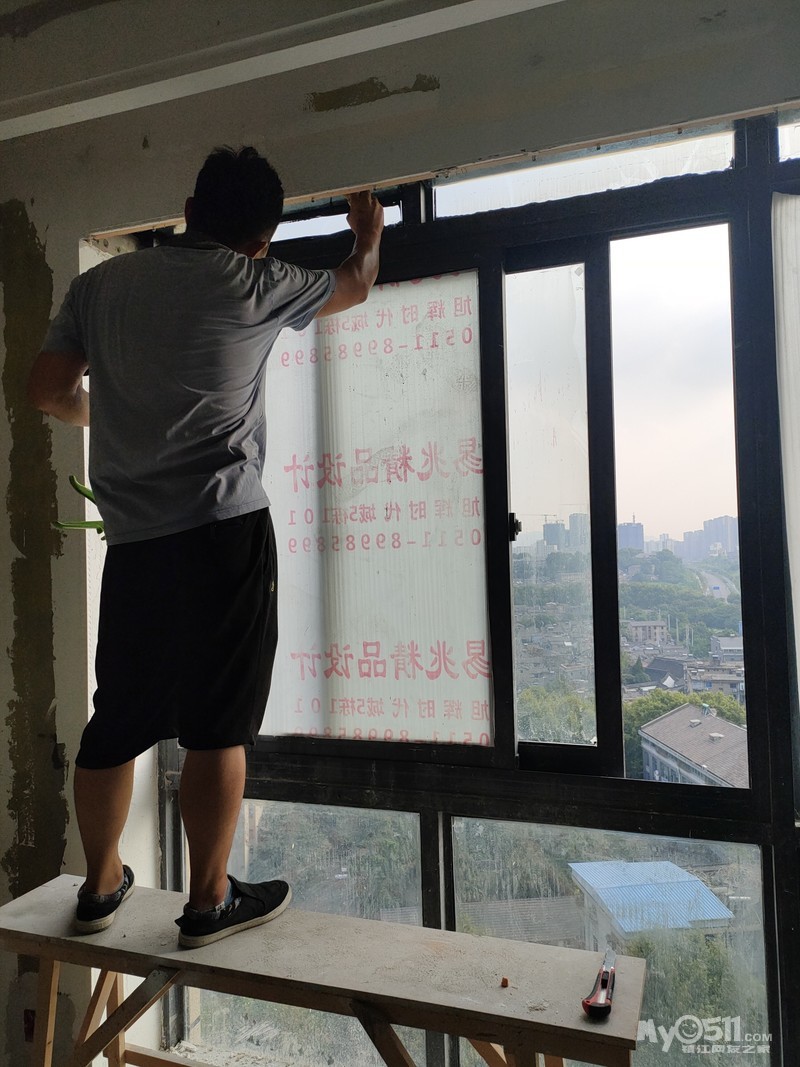 旭辉时代城5栋10
0511-89985899
易兆精品设计
旭辉时代城5栋101
0511-89985899
易兆精品设计
旭辉时代城5栋101
0511-89985899
My0511.COM
镇江网友之家